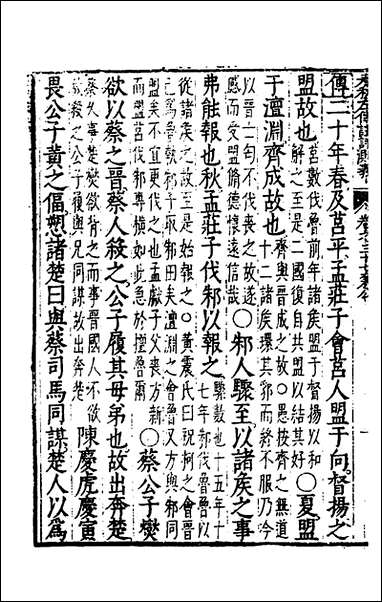 傳二十年春及莒平孟莊子會莒人盟于向督揚之
盟故也莒數伐魯前年諸侯盟于督揚以和解之至是二國復自共盟以結其好○夏盟
于澶淵齊成故也齊與晉成之故○愚按齊之無道十二諸侯環其郛而終不服乃今
以晉士匄不伐喪之故遂感而受盟脩德懷遠信哉○邾人驟至以諸侯之事
弗能報也秋孟莊子伐邾以報之驟數也十五年十七年邾伐魯魯以
從諸侯之故至是始報之○黃震氏曰祝柯之會晉已為魯執邾子取邾田矣澶淵之會魯又方與邾同
盟矣不宜更伐之也孟獻子父喪方新而背盟伐邾專橫如此急於擅魯爾○蔡公子燮
欲以蔡之晉蔡人殺之公子履其母弟也故出奔楚
蔡久事楚燮欲背之而事晉國人不欲故殺之公子履與兄同謀故出奔陳慶虎慶寅
畏公子黃之偪愬諸楚曰與蔡司馬同謀楚人以為